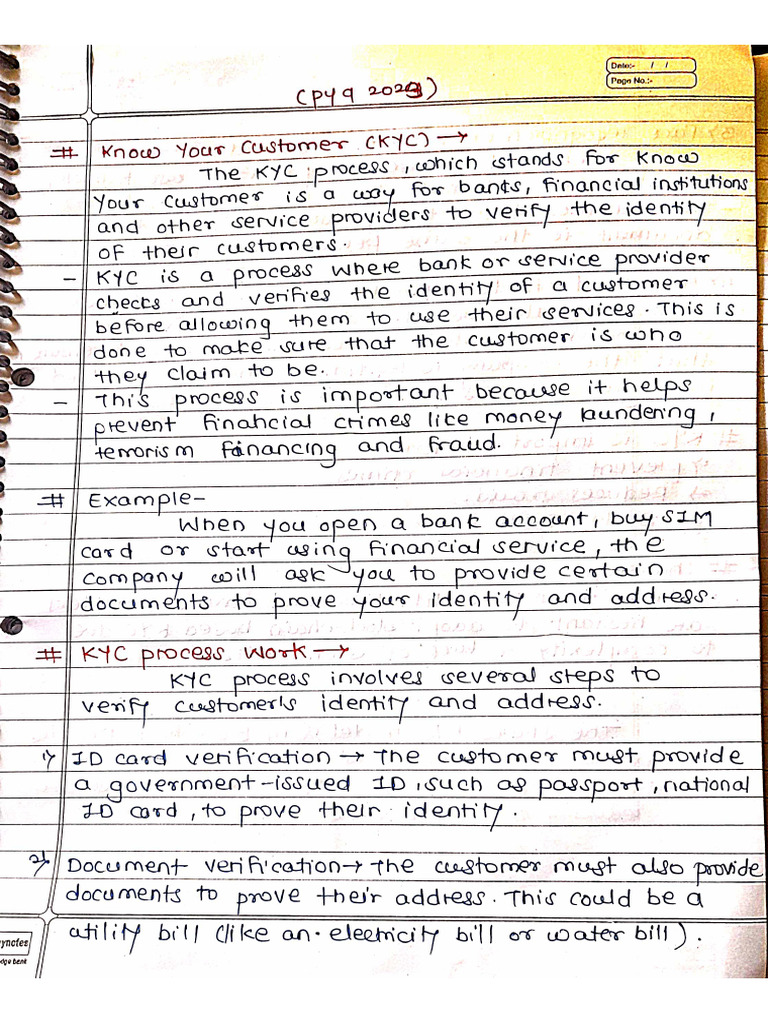 Date:- / /
Page No.:-
(PYQ 2023)
# Know Your Customer (KYC) →
The KYC process, which stands for Know
Your Customer is a way for banks, financial institutions
and other service providers to verify the identity
of their customers.
- KYC is a process where bank or service provider
checks and verifies the identity of a customer
before allowing them to use their services. This is
done to make sure that the customer is who
they claim to be.
- This process is important because it helps
prevent financial crimes like money laundering,
terrorism financing and fraud.
# Example-
When you open a bank account, buy SIM
card or start using financial service, the
company will ask you to provide certain
documents to prove your identity and address.
# KYC process work →
KYC process involves several steps to
verify customer's identity and address.
1) ID card verification → The customer must provide
a government-issued ID, such as passport, national
ID card, to prove their identity.
2) Document verification → The customer must also provide
documents to prove their address. This could be a
utility bill (like an electricity bill or water bill).